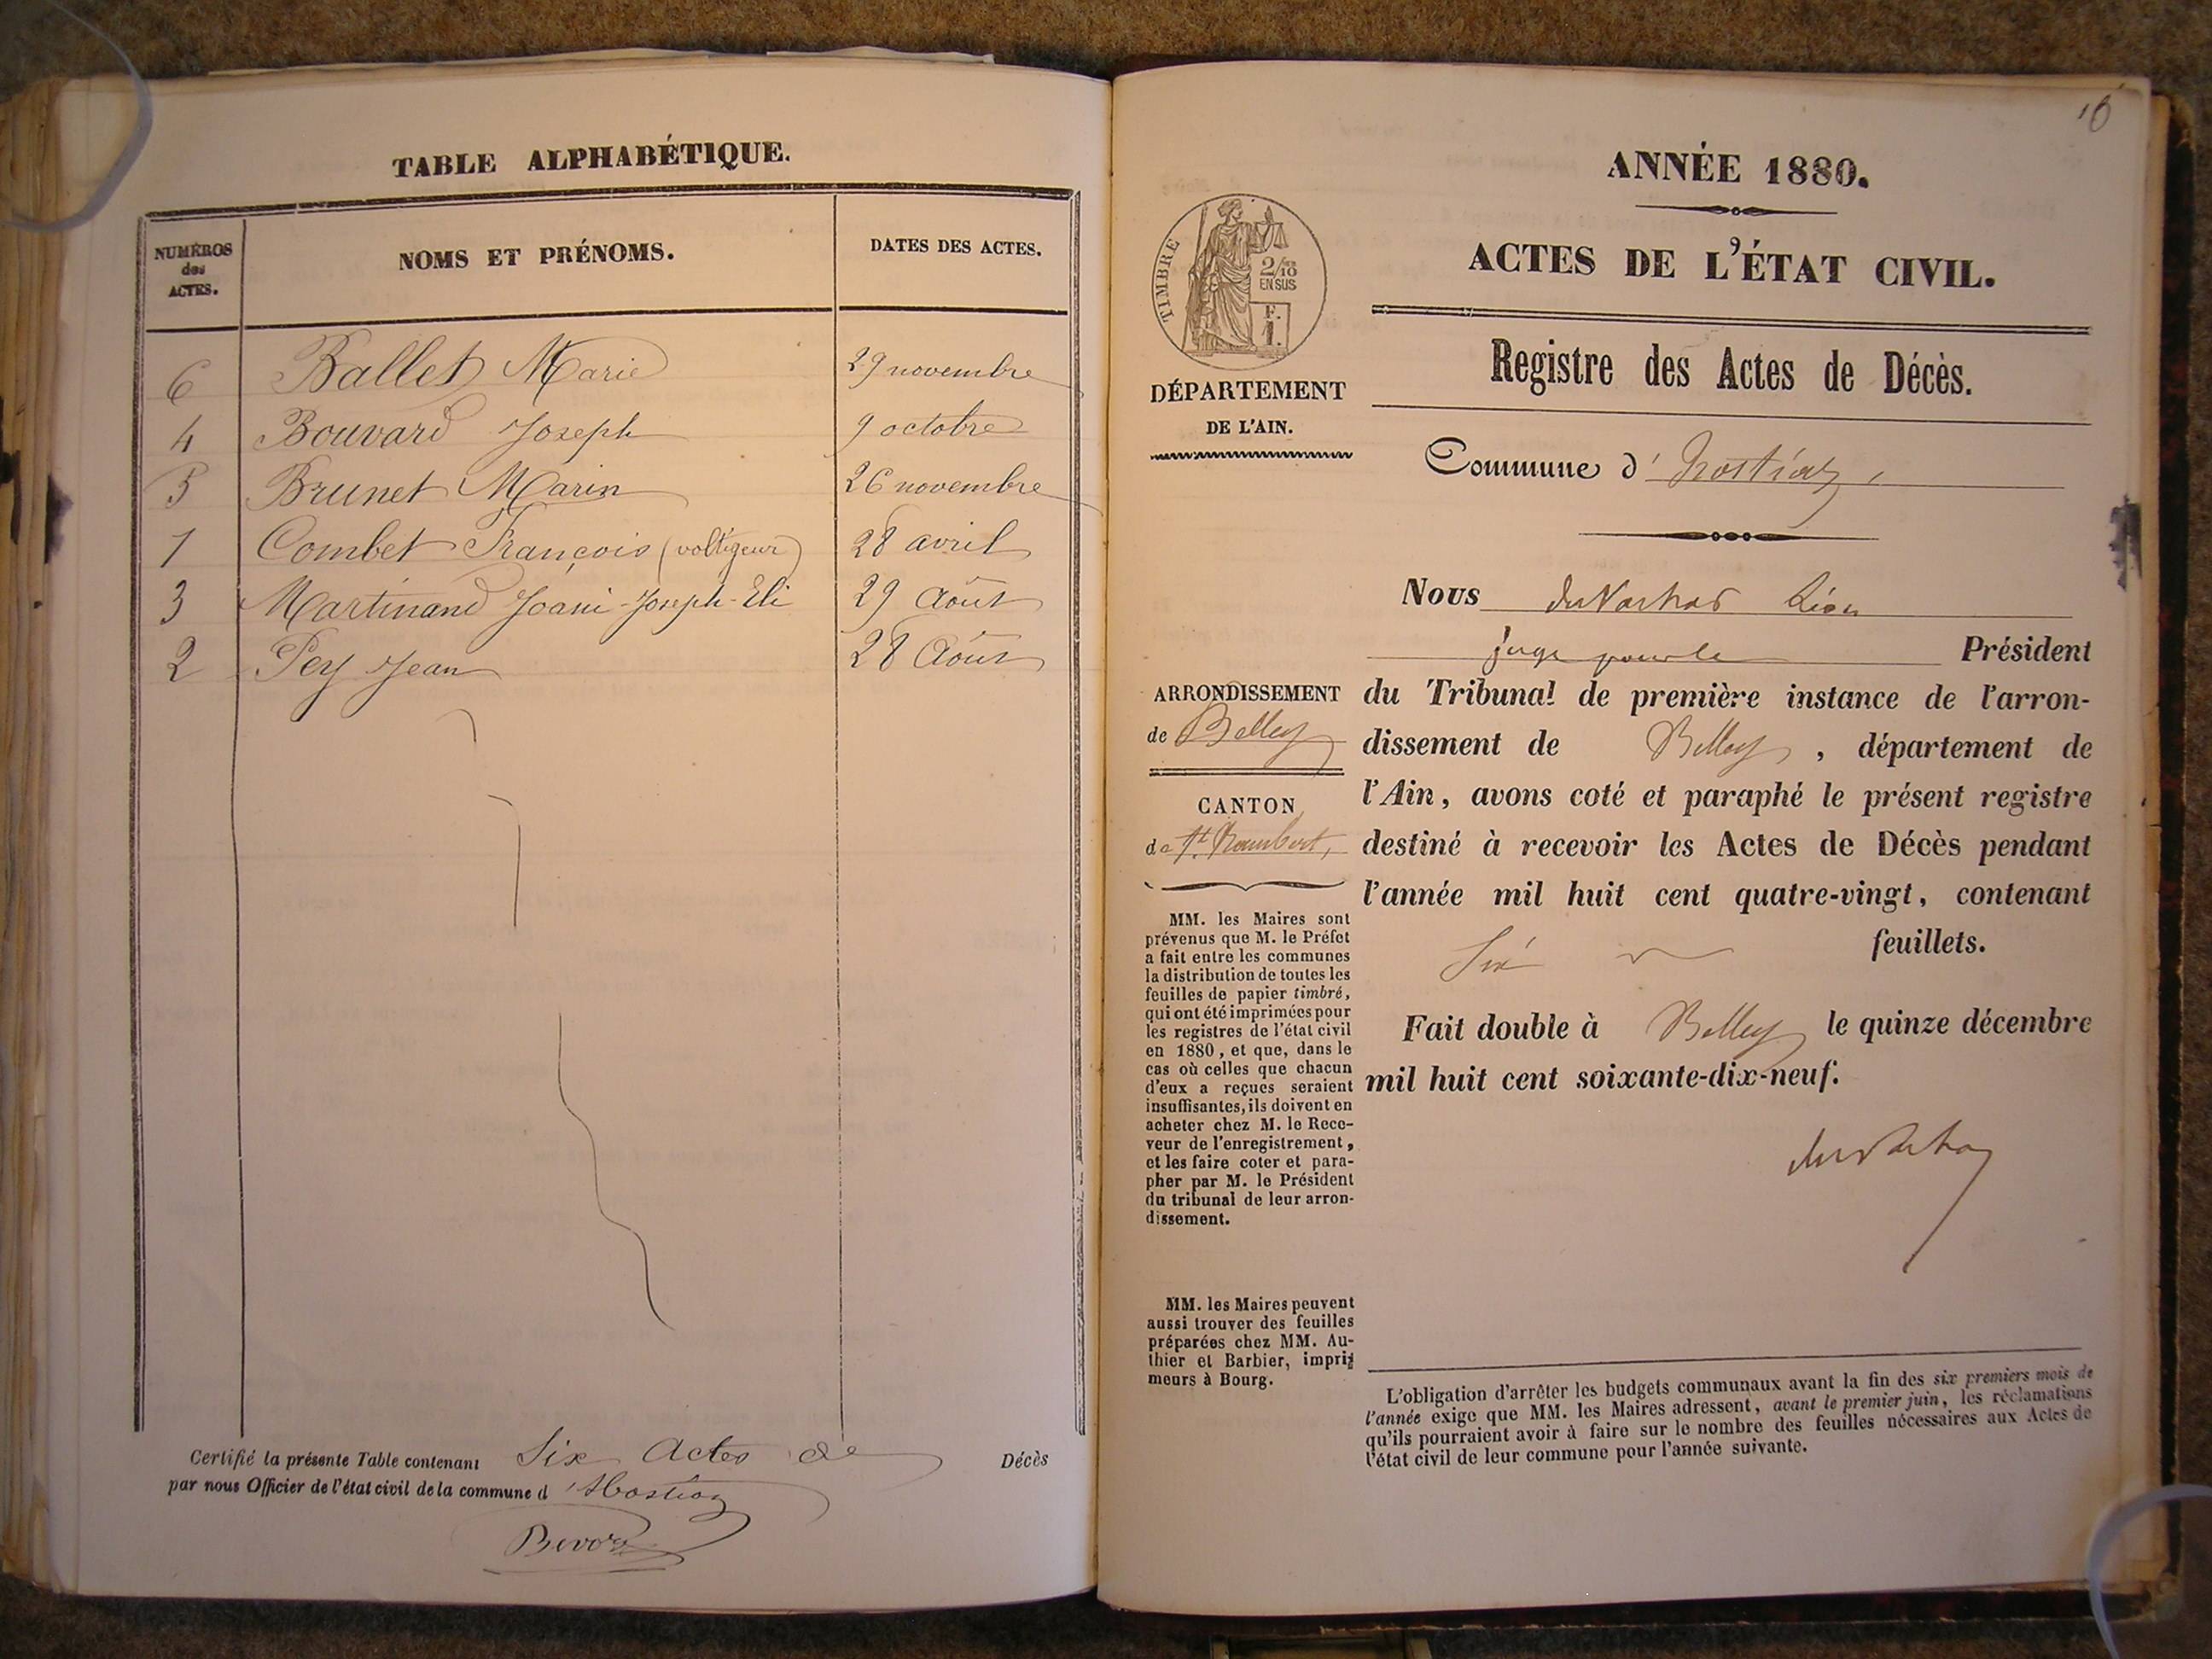 TABLE ALPHABÉTIQUE.
NUMÉROS
des
ACTES.
NOMS ET PRÉNOMS.
DATES DES ACTES.
6 Ballet Marie 29 novembre
4 Bouvard Joseph 9 octobre
5 Brunet Marin 26 novembre
1 Combet François (voltigeur) 28 avril
3 Martinand Joani-Joseph-Eli 29 Août
2 Pey Jean 28 Août
Certifié la présente Table contenant Six Actes de Décès
par nous Officier de l'état civil de la commune d'Hostiaz
16
ANNÉE 1880.
ACTES DE L'ÉTAT CIVIL.
Registre des Actes de Décès.
Commune d'hostiaz,
TIMBRE
2/10
EN SUS
F.
1.
DÉPARTEMENT
DE L'AIN.
ARRONDISSEMENT
de Belley
CANTON
de St. Rambert,
MM. les Maires sont
prévenus que M. le Préfet
a fait entre les communes
la distribution de toutes les
feuilles de papier timbré,
qui ont été imprimées pour
les registres de l'état civil
en 1880, et que, dans le
cas où celles que chacun
d'eux a reçues seraient
insuffisantes, ils doivent en
acheter chez M. le Rece-
veur de l'enregistrement,
et les faire coter et para-
pher par M. le Président
du tribunal de leur arron-
dissement.
MM. les Maires peuvent
aussi trouver des feuilles
préparées chez MM. Au-
thier et Barbier, impri-
meurs à Bourg.
Nous Léon
juge pour le Président
du Tribunal de première instance de l'arron-
dissement de Belley, département de
l'Ain, avons coté et paraphé le présent registre
destiné à recevoir les Actes de Décès pendant
l'année mil huit cent quatre-vingt, contenant
Six feuillets.
Fait double à Belley le quinze décembre
mil huit cent soixante-dix-neuf.
L'obligation d'arrêter les budgets communaux avant la fin des six premiers mois de
l'année exige que MM. les Maires adressent, avant le premier juin, les réclamations
qu'ils pourraient avoir à faire sur le nombre des feuilles nécessaires aux Actes de
l'état civil de leur commune pour l'année suivante.